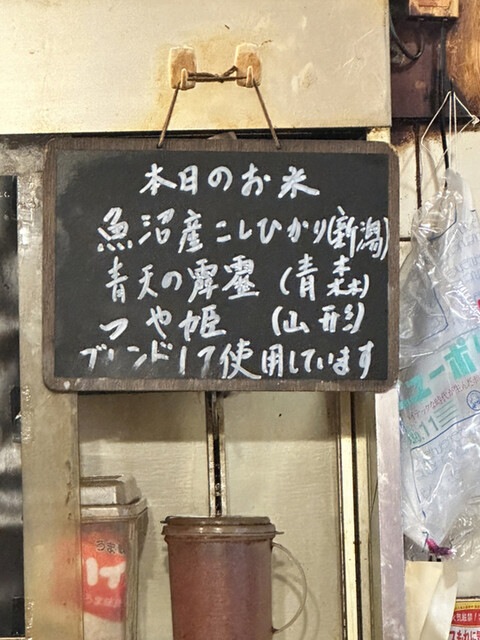 本日のお米
魚沼産こしひかり(新潟)
青天の霹靂 (青森)
つや姫 (山形)
ブレンドして使用しています